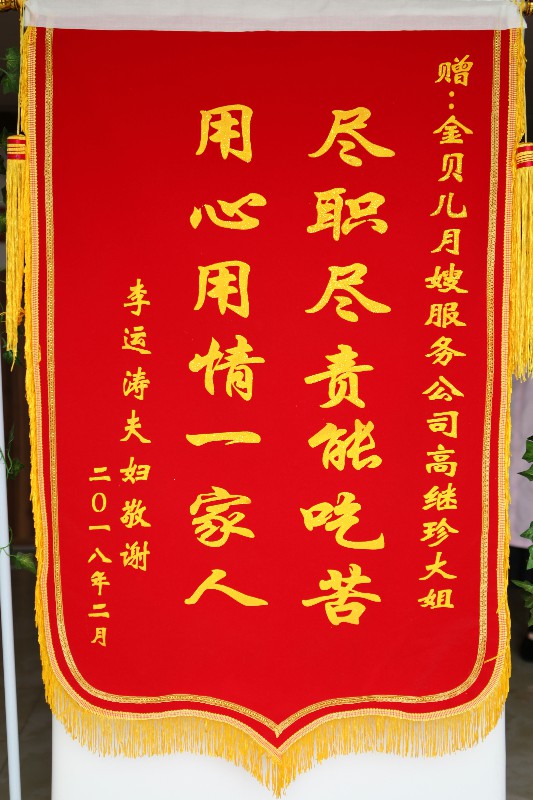 赠：金贝儿月嫂服务公司高继珍大姐
尽职尽责能吃苦
用心用情一家人
李运涛夫妇敬谢
二〇一八年二月